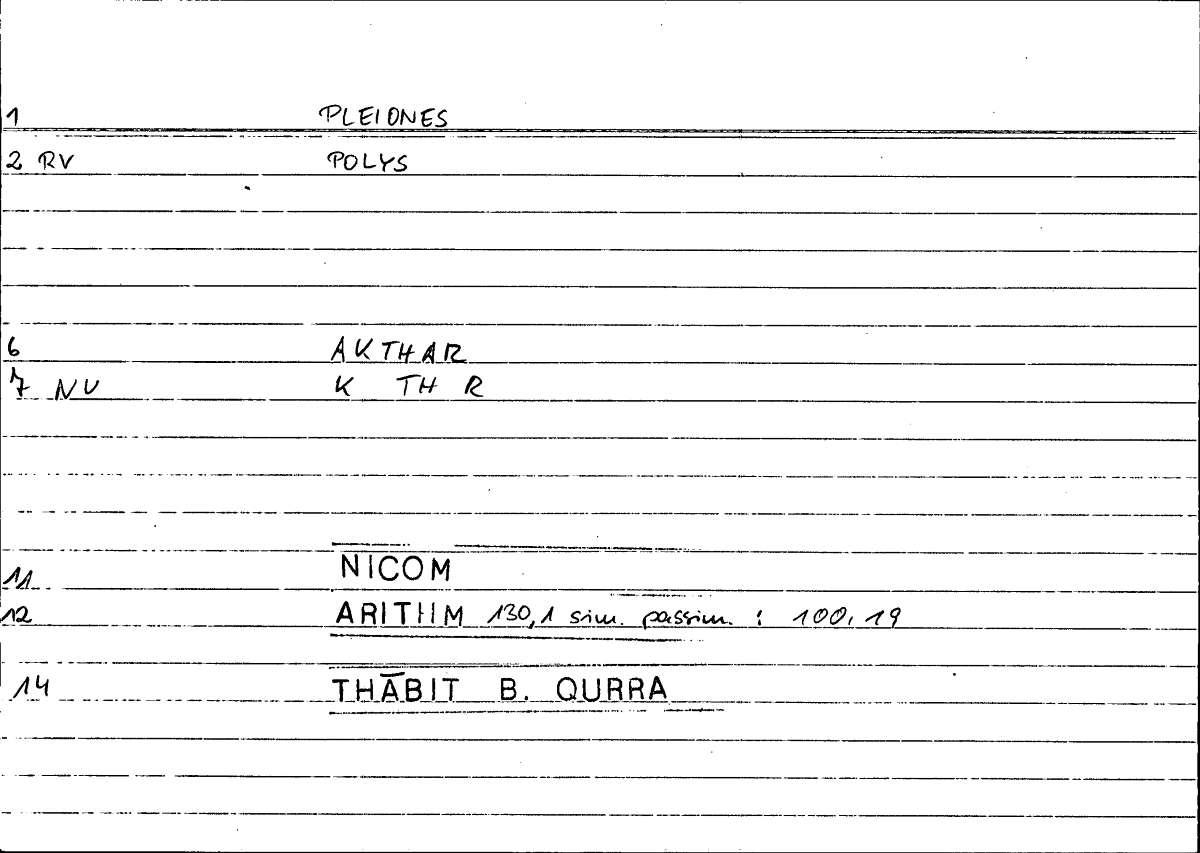 1 PLEIONES
2 RV POLYS
6 AKTHAR
7 NV K TH R
11 NICOM
12 ARITHM 130,1 sim. passim. : 100,19
14 THĀBIT B. QURRA